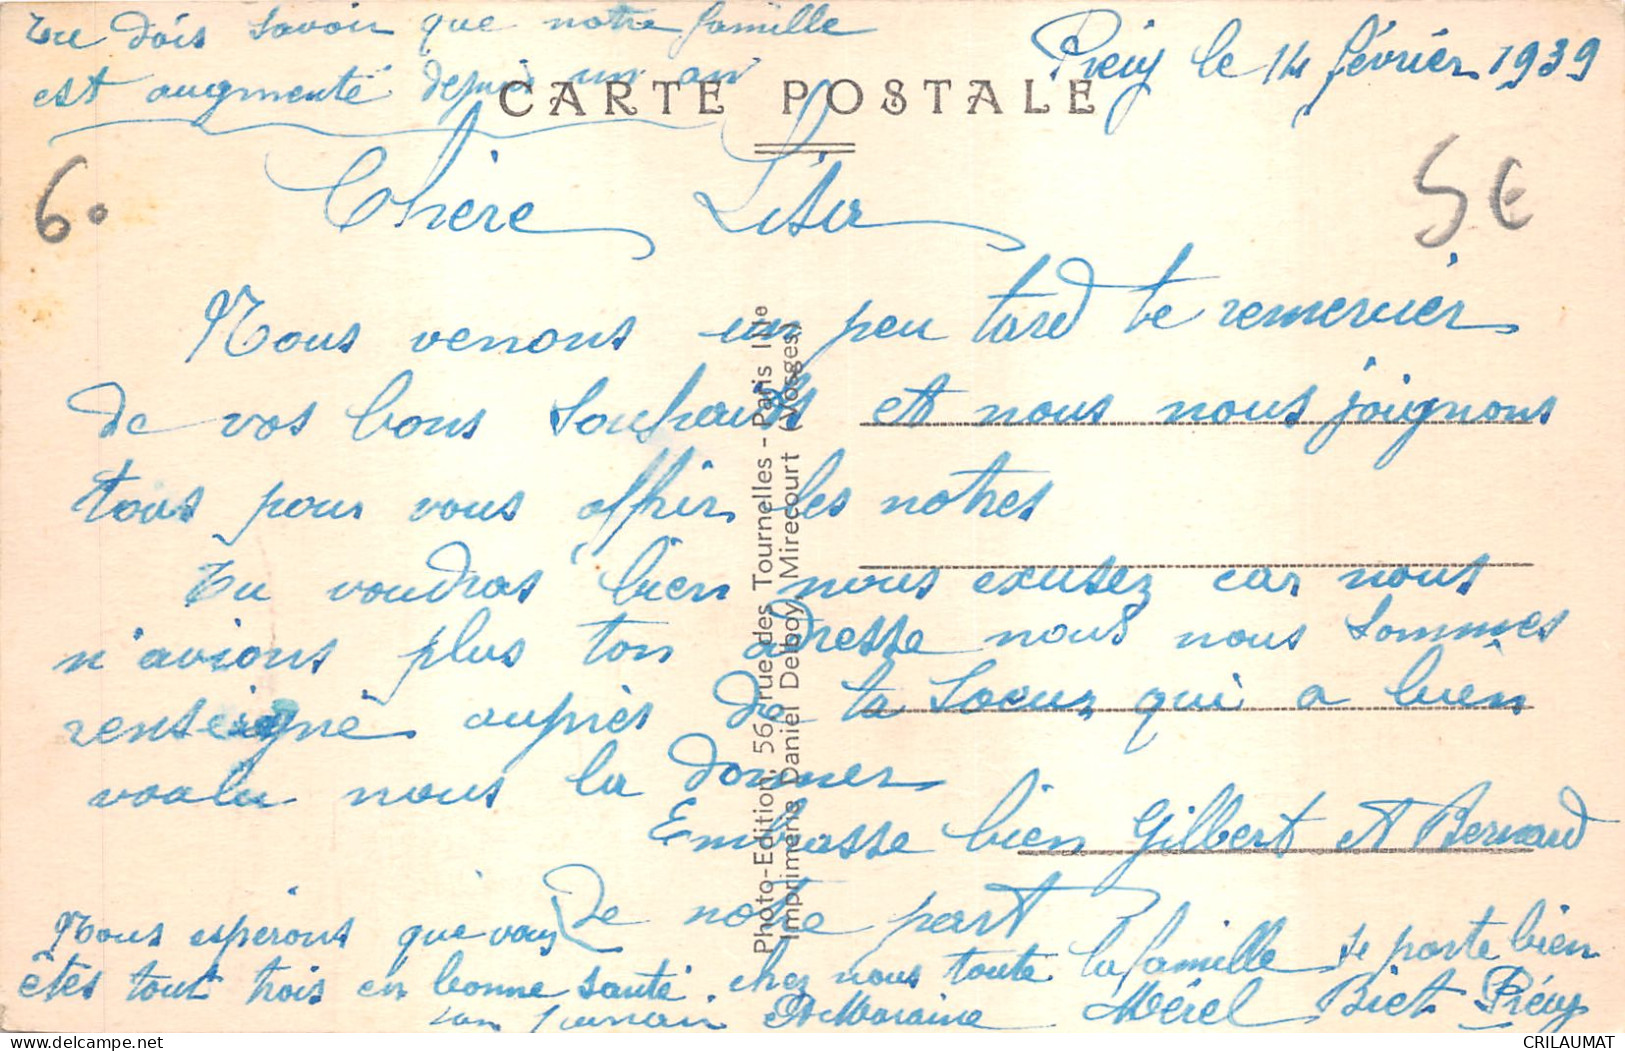 Tu dois savoir que notre famille
est augmenté depuis un an
Précy le 14 février 1939
CARTE POSTALE
6.
5€
Chère Lisa
Nous venons un peu tard te remercier
de vos bons souhaits et nous nous joignons
tous pour vous offrir les notres
Tu voudras bien nous excusez car nous
n'avions plus ton adresse nous nous sommes
renseigné auprès de ta soeur qui a bien
voulu nous la donner
Embrasse bien Gilbert et Bernard
de notre part
Nous espérons que vous
êtes tout trois en bonne santé. chez nous toute la famille se porte bien
Mérel Biet Précy
Photo-Edition, 56, rue des Tournelles - Paris IIIe
Imprimerie Daniel Delboy, Mirecourt (Vosges)
CRILAUMAT